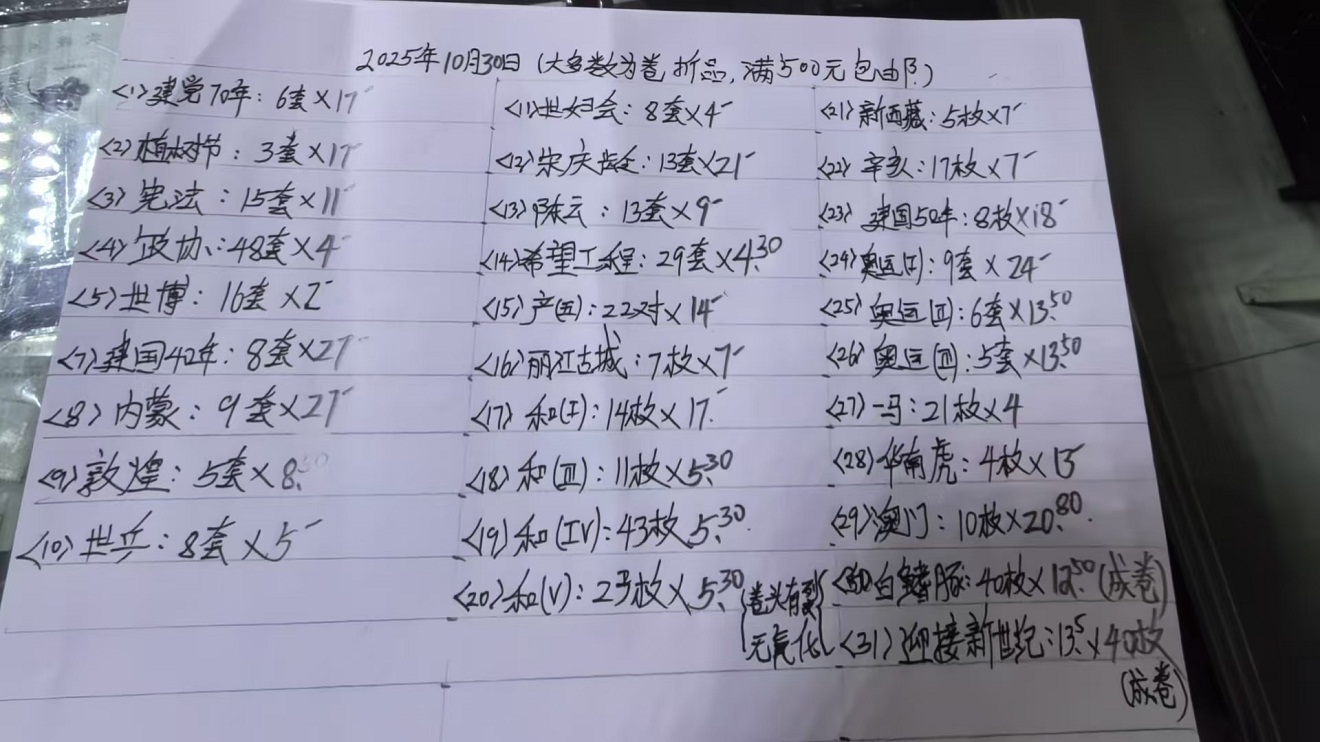 2025年10月30日（大多数为卷拆品，满500元包邮）
<1>建党70年：6套×17-
<2>植树节：3套×17-
<3>宪法：15套×11-
<4>政协：48套×4-
<5>世博：16套×2-
<7>建国40年：8套×27-
<8>内蒙：9套×27-
<9>敦煌：5套×8.50
<10>世乒：8套×5-
<11>世妇会：8套×4-
<12>宋庆龄：13套×21-
<13>陈云：13套×9-
<14>希望工程：29套×4.30
<15>产(五)：22对×14-
<16>丽江古城：7枚×7-
<17>和(I)：14枚×17.
<18>和(III)：11枚×5.30
<19>和(IV)：43枚 5.30.
<20>和(V)：23枚×5.30
<21>新西藏：5枚×7-
<22>辛亥：17枚×7-
<23>建国50年：8枚×18-
<24>奥运(I)：9套×24-
<25>奥运(II)：6套×13.50
<26>奥运(III)：5套×13.50
<27>一马：21枚×4
<28>华南虎：4枚×13-
<29>澳门：10枚×20.80.
卷头有裂
无氧化
<30>白鳍豚：40枚×12.50(成卷)
<31>迎接新世纪：13.5×40枚
(成卷)